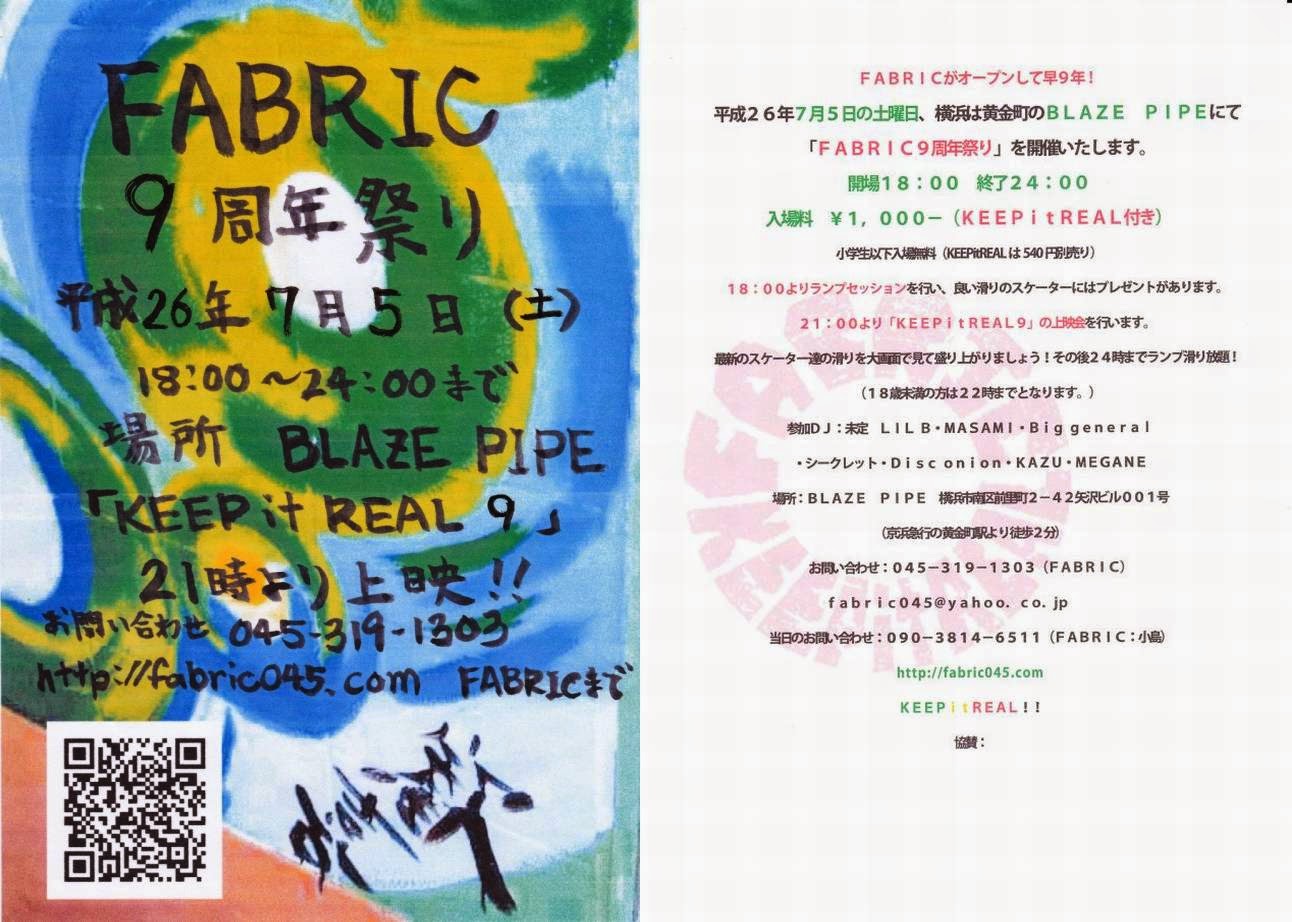 FABRIC
9周年祭り
平成26年7月5日(土)
18:00~24:00まで
場所 BLAZE PIPE
「KEEP it REAL 9」
21時より上映!!
お問い合わせ 045-319-1303
http://fabric045.com FABRICまで
FABRICがオープンして早9年!
平成26年7月5日の土曜日、横浜は黄金町のBLAZE PIPEにて
「FABRIC9周年祭り」を開催いたします。
開場18:00 終了24:00
入場料 ¥1,000-(KEEPitREAL付き)
小学生以下入場無料(KEEPitREALは540円別売り)
18:00よりランプセッションを行い、良い滑りのスケーターにはプレゼントがあります。
21:00より「KEEPitREAL9」の上映会を行います。
最新のスケーター達の滑りを大画面で見て盛り上がりましょう!その後24時までランプ滑り放題!
(18歳未満の方は22時までとなります。)
参加DJ:未定 LIL B・MASAMI・Big general
・シークレット・Disc onion・KAZU・MEGANE
場所:BLAZE PIPE 横浜市南区前里町2-42矢沢ビル001号
(京浜急行の黄金町駅より徒歩2分)
お問い合わせ:045-319-1303(FABRIC)
fabric045@yahoo.co.jp
当日のお問い合わせ:090-3814-6511(FABRIC:小島)
http://fabric045.com
KEEPitREAL!!
協賛: